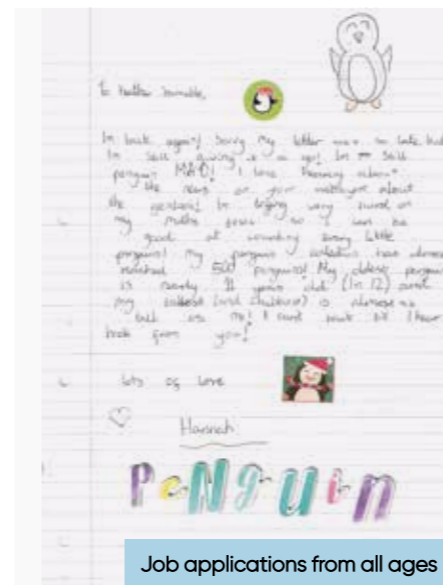 Im back again! Sorry my letter was so late but
Im still giving it a go! Im still
penguin MAD! I love
the news on your about
the Im trying very hard on
my maths so I can be
good at counting every little
penguin! My penguin collection has almost
reached 500 penguins! My oldest penguin
is nearly 11 years old (Im 12) and
my tallest (and chubbiest) is almost as
tall as me! I cant wait till I hear
back from you!
lots of love
Hannah
PeNgUin
Job applications from all ages